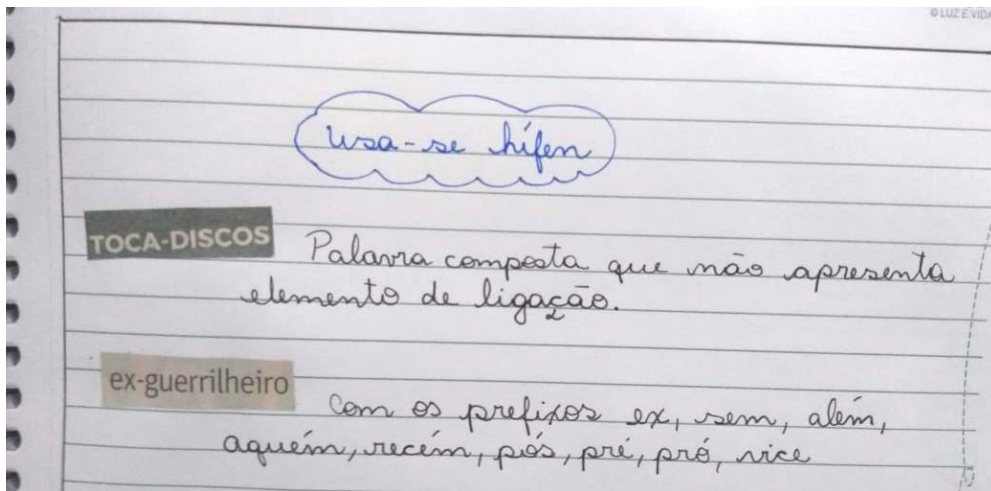 © LUZ E VIDA
Usa-se hífen
TOCA-DISCOS Palavra composta que não apresenta
elemento de ligação.
ex-guerrilheiro Com os prefixos ex, sem, além,
aquém, recém, pós, pré, pró, vice